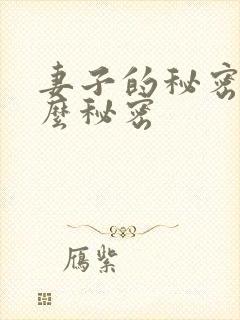 妻子的秘密
麼秘密
雁紫